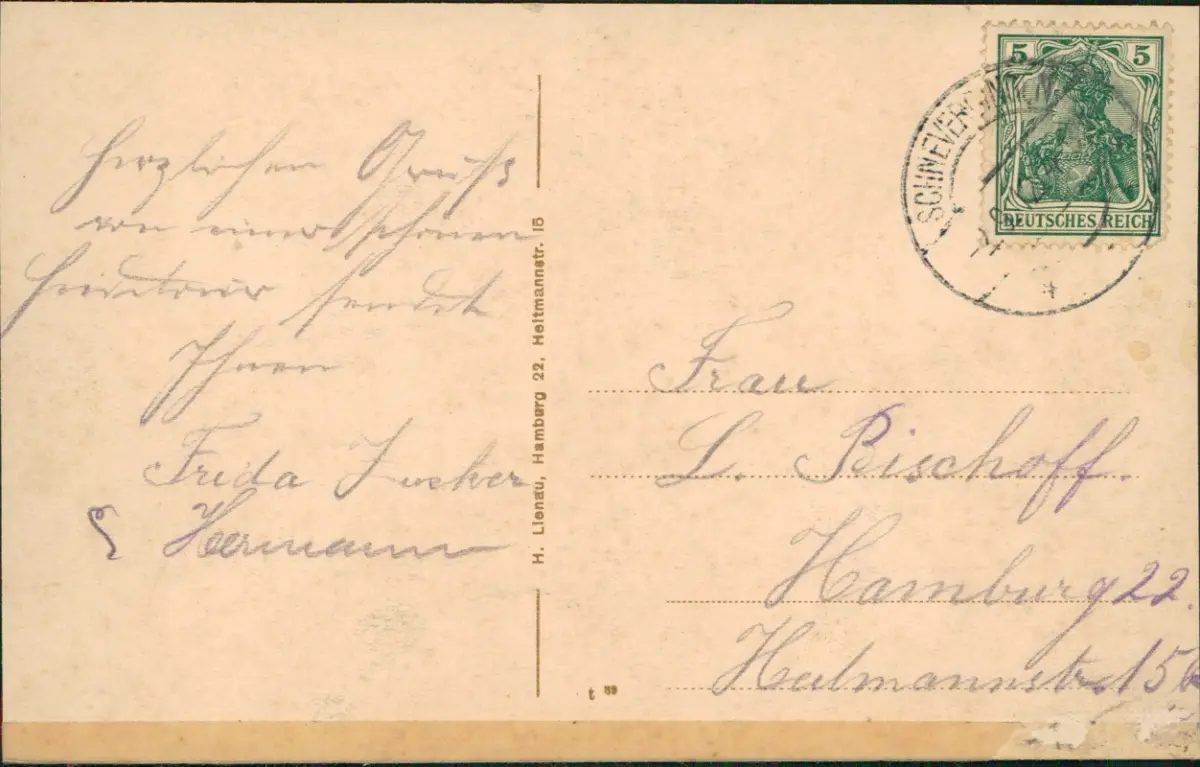 Herzlichen Gruß
von einer schönen
Heidetour sendet
Ihnen
Frida
& Hermann
H. Lienau, Hamburg 22, Heitmannstr. 15
5 5
DEUTSCHES REICH
SCHNEVERDINGEN
Frau
L. Bischoff.
Hamburg 22.
Heitmannstr. 15
t 89